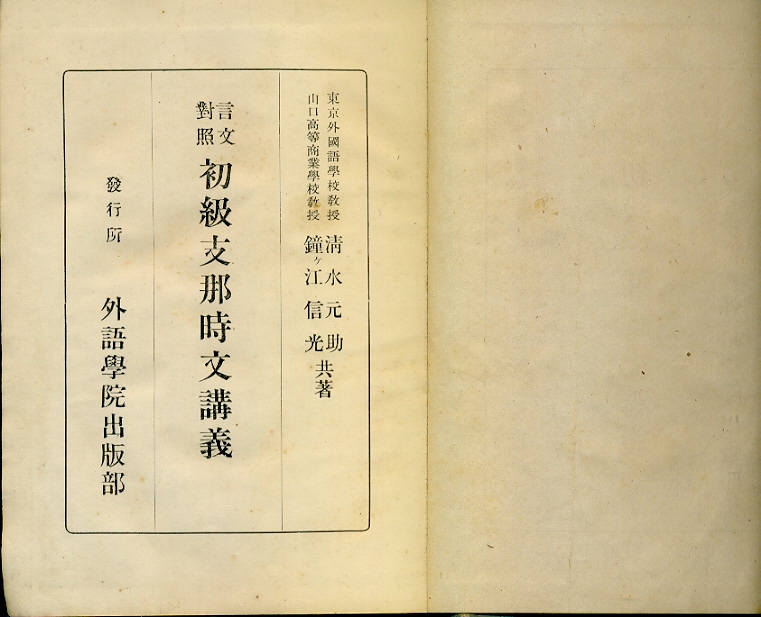 東京外國語學校敎授 淸水元助
山口高等商業學校敎授 鐘ヶ江信光
共著
言文
對照
初級支那時文講義
發行所 外語學院出版部